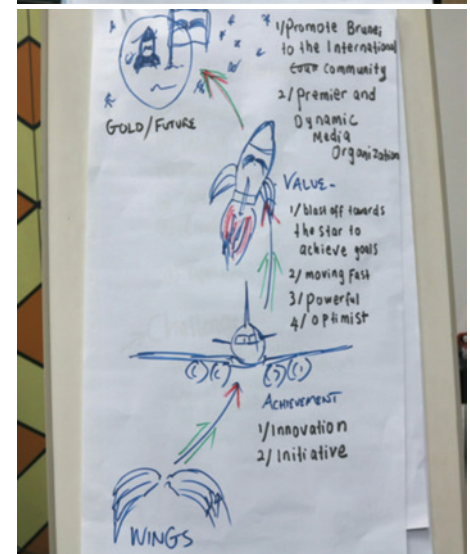 1/Promote Brunei
to the International
tour community
2/ Premier and
Dynamic
Media
Organization
GOLD/FUTURE
VALUE -
1/blast off towards
the star to
achieve goals
2/ moving Fast
3/ powerful
4/ optimist
ACHIEVEMENT
1/Innovation
2/ Initiative
WINGS